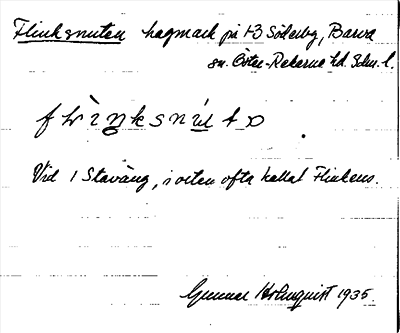 Flinksnuten hagmark på 1-3 Söderby, Barva
sn. Öster-Rekarne hd. Sdm. l.
Vid 1 Staväng, i orten ofta kallat Flinkens.
Gunnar Holmquist 1935.